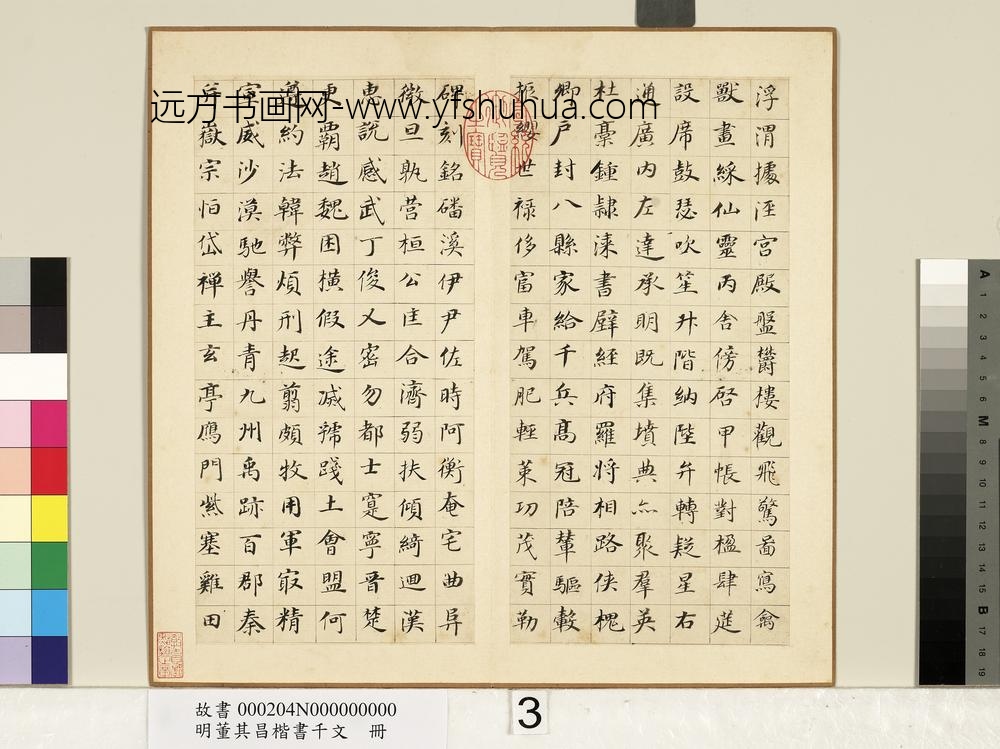 浮渭據涇宮殿盤欝樓觀飛驚啚寫禽
獸畫綵仙靈丙舍傍啓甲帳對楹肆筵
設席鼓瑟吹笙升階納陛弁轉疑星右
通廣内左達承明既集墳典亦聚羣英
杜稾鍾隸漆書壁經府羅將相路俠槐
卿戶封八縣家給千兵高冠陪輦驅轂
振纓世祿侈富車駕肥輕策功茂實勒
碑刻銘磻溪伊尹佐時阿衡奄宅曲阜
微旦孰營桓公匡合濟弱扶傾綺迴漢
惠說感武丁俊乂密勿都士寔寧晉楚
更覇趙魏困橫假途滅虢踐土會盟何
遵約法韓弊煩刑起翦頗牧用軍最精
宣威沙漠馳譽丹青九州禹跡百郡秦
并嶽宗恒岱禪主玄亭鴈門紫塞雞田
远方书画网-www.yfshuhua.com
故書 000204N000000000
明董其昌楷書千文 冊
3
A 1 2 3 4 5 6 M 8 9 10 11 12 13 14 15 B 17 18 19